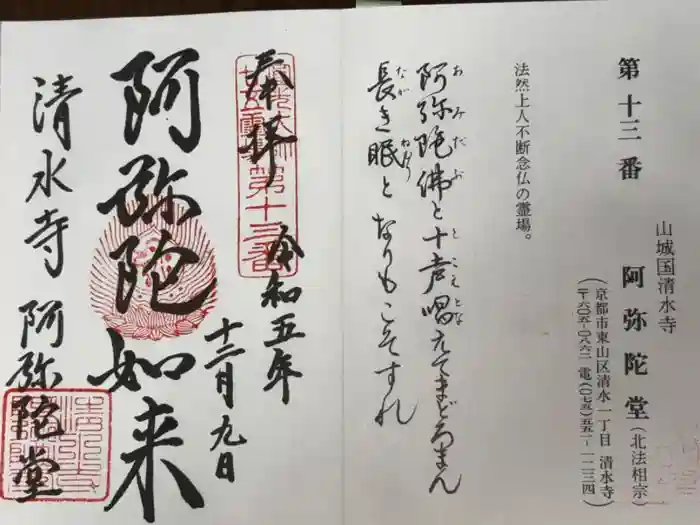 第十三番
山城国清水寺
阿弥陀堂(北法相宗)
(京都市東山区清水一丁目 清水寺)
(〒六〇五-〇八六二 電(〇七五)五五一-一二三四)
法然上人不断念仏の霊場。
阿弥陀佛と十声唱えてまどろまん
あみだぶ とこえとな
長き眠となりもこそすれ
なが ねむり
奉拝
第十三番
令和五年
十二月九日
阿弥陀如来
清水寺 阿弥陀堂